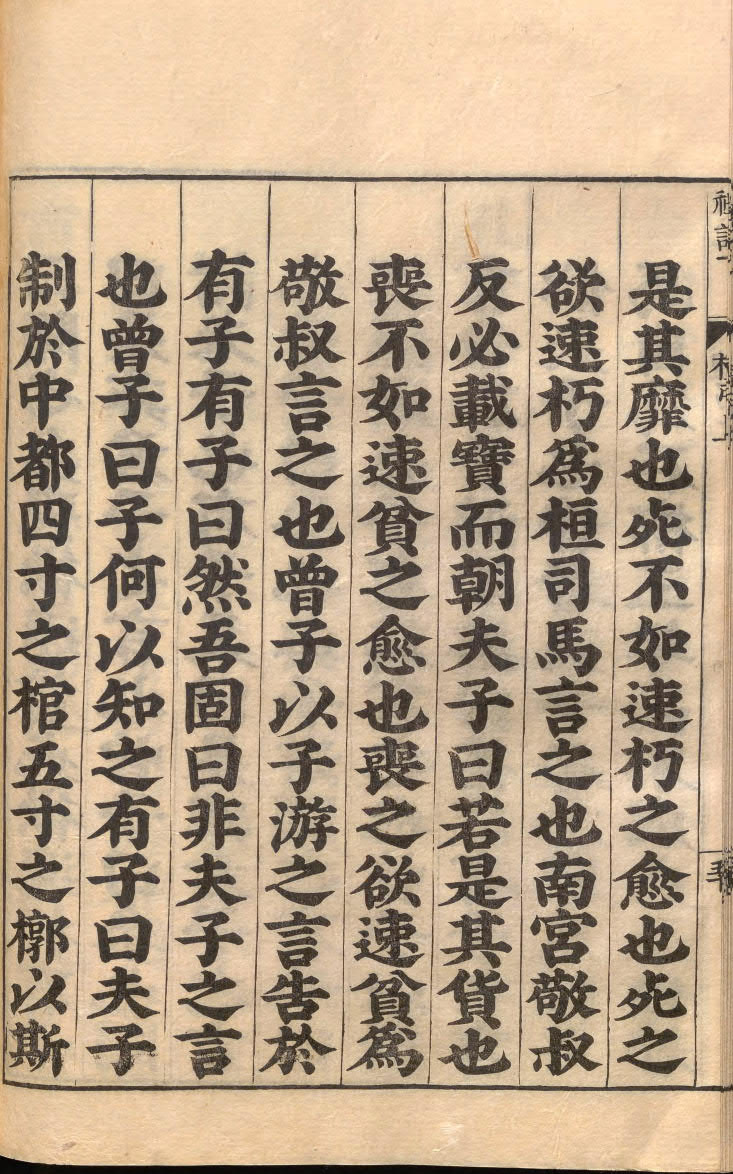 是其靡也死不如速朽之愈也死之
欲速朽爲桓司馬言之也南宮敬叔
反必載寶而朝夫子曰若是其貨也
喪不如速貧之愈也喪之欲速貧爲
敬叔言之也曾子以子游之言告於
有子有子曰然吾固曰非夫子之言
也曾子曰子何以知之有子曰夫子
制於中都四寸之棺五寸之槨以斯